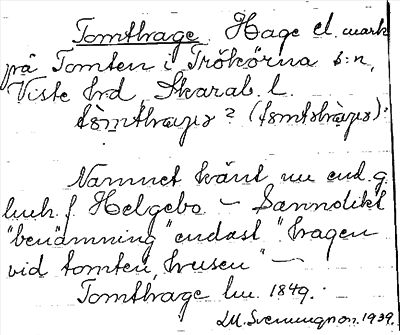 Tomthage. Hage el. mark
på Tomten i Trökörna s:n,
Viste hrd, Skarab. l.
Namnet känt nu end. g.
huh. f. Helgebo — Sannolikt
"benämning" endast "hagen
vid tomten, husen" —
Tomthage hu. 1849.
LM. Svenungson. 1939.